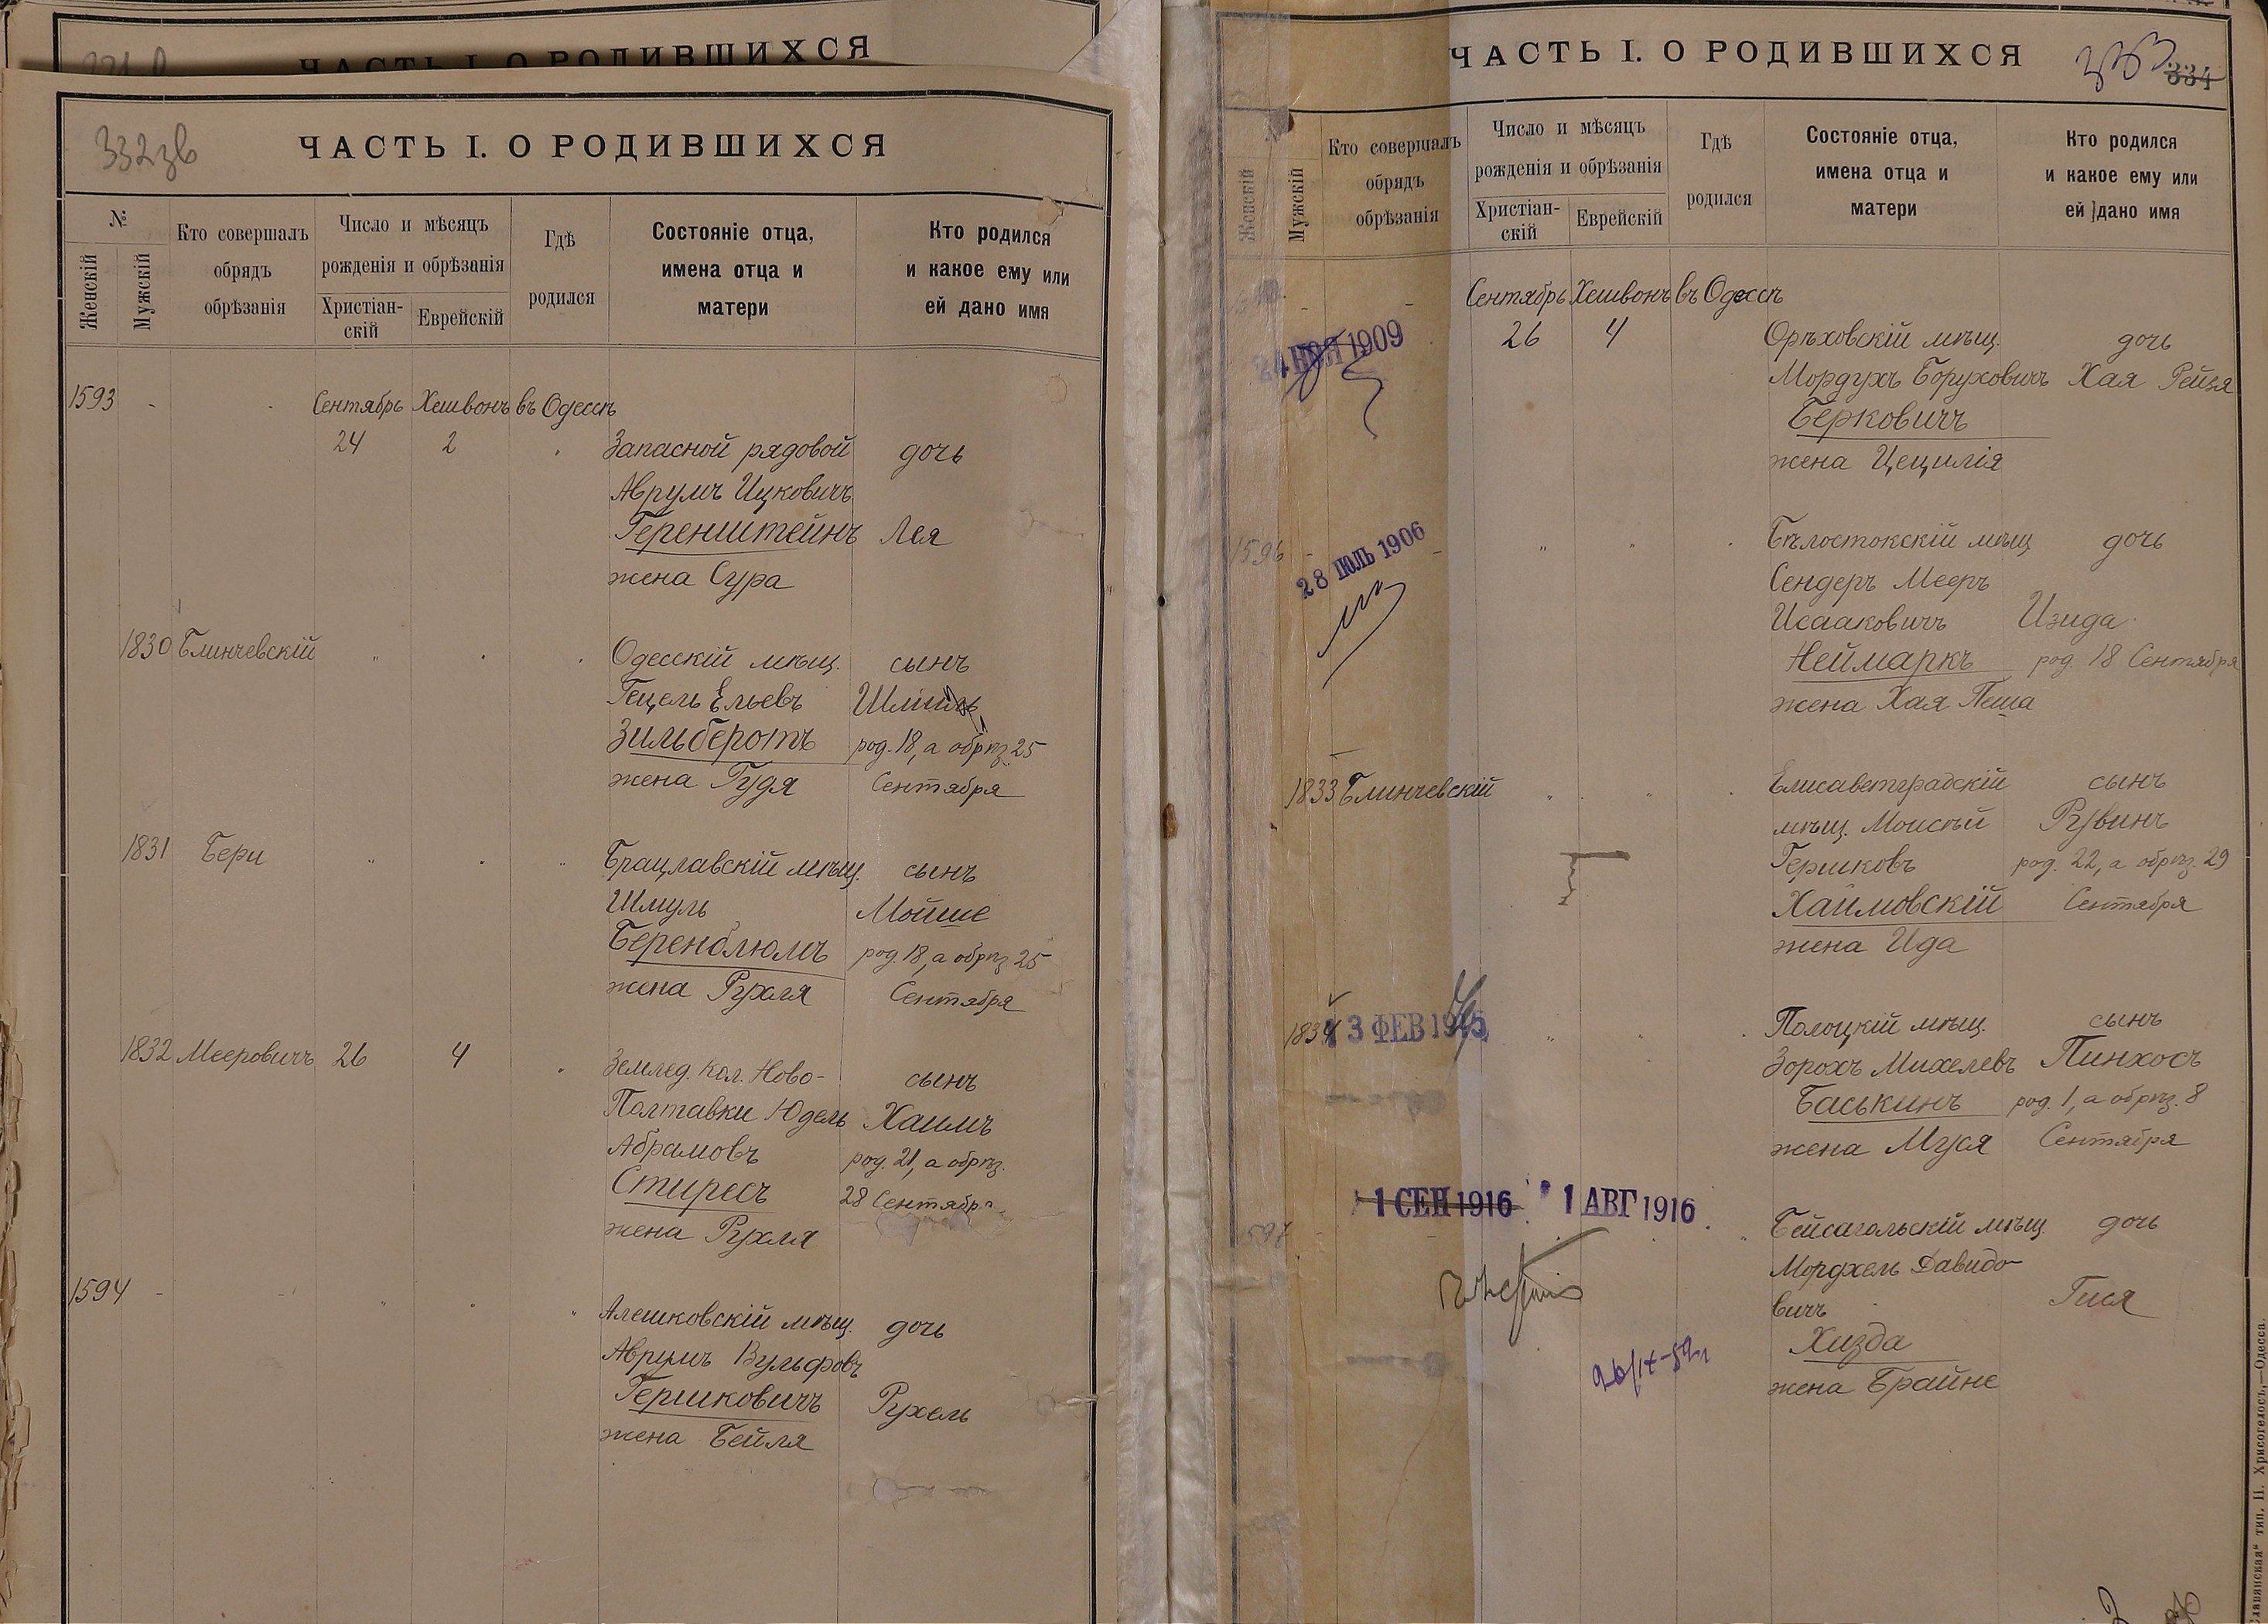 ЧАСТЬ I. О РОДИВШИХСЯ
332зв
ЧАСТЬ I. О РОДИВШИХСЯ
№
Женскій
Мужскій
Кто совершалъ
обрядъ
обрѣзанія
Число и мѣсяцъ
рожденія и обрѣзанія
Христіан-
скій
Еврейскій
Гдѣ
родился
Состояніе отца,
имена отца и
матери
Кто родился
и какое ему или
ей дано имя
1593 - - Сентябрь Хешвонъ въ Одессѣ
24 2 Запасной рядовой дочь
Аврумъ Ицковичъ
Геренштейнъ Лея
жена Сура
1830 Блинчевскій " " " Одесскій мѣщ. сынъ
Гецель Ельевъ
Зильберотъ род. 18, а обрѣз. 25
жена Гудя Сентября
1831 Бери " " " Брацлавскій мѣщ. сынъ
Шмуль Мойше
Беренблюмъ род. 18, а обрѣз. 25
жена Рухля Сентября
1832 Мееровичъ 26 4 " Землед. Кол. Ново-
сынъ
Полтавки Юдель Хаимъ
Абрамовъ род. 21, а обрѣз.
Стиресъ 28 Сентября
жена Рухля
1594 - - " " " Алешковскій мѣщ. дочь
Аврумъ Вульфовъ
Гершковичъ Рухель
жена Бейля
ЧАСТЬ I. О РОДИВШИХСЯ
333
334
Женскій
Мужскій
Кто совершалъ
обрядъ
обрѣзанія
Число и мѣсяцъ
рожденія и обрѣзанія
Христіан-
скій
Еврейскій
Гдѣ
родился
Состояніе отца,
имена отца и
матери
Кто родился
и какое ему или
ей дано имя
- - Сентябрь Хешвонъ въ Одессѣ
26 4 Орѣховскій мѣщ. дочь
24 НОЯ 1909
Мордухъ Боруховичъ Хая Рейзя
Берковичъ
жена Цецилія
1596 - - " " " Бѣлостокскій мѣщ дочь
28 ІЮЛЬ 1906
Сендеръ Мееръ
Исааковичъ Изида
Неймаркъ род. 18 Сентября
жена Хая Пеша
1833 Блинчевскій " " " Елисаветградскій сынъ
мѣщ. Моисѣй Рувинъ
Гершковъ род. 22, а обрѣз. 29
Хаимовскій Сентября
жена Ида
1834 " " " Полоцкій мѣщ. сынъ
3 ФЕВ 1915
Зорохъ Михелевъ Пинхосъ
Баськинъ род. 1, а обрѣз. 8
жена Муся Сентября
1 СЕН 1916 1 АВГ 1916
1597 - - " Бейсагольскій мѣщ. дочь
Мордхель Давидо-
вичъ Гися
Хизда
жена Брайне